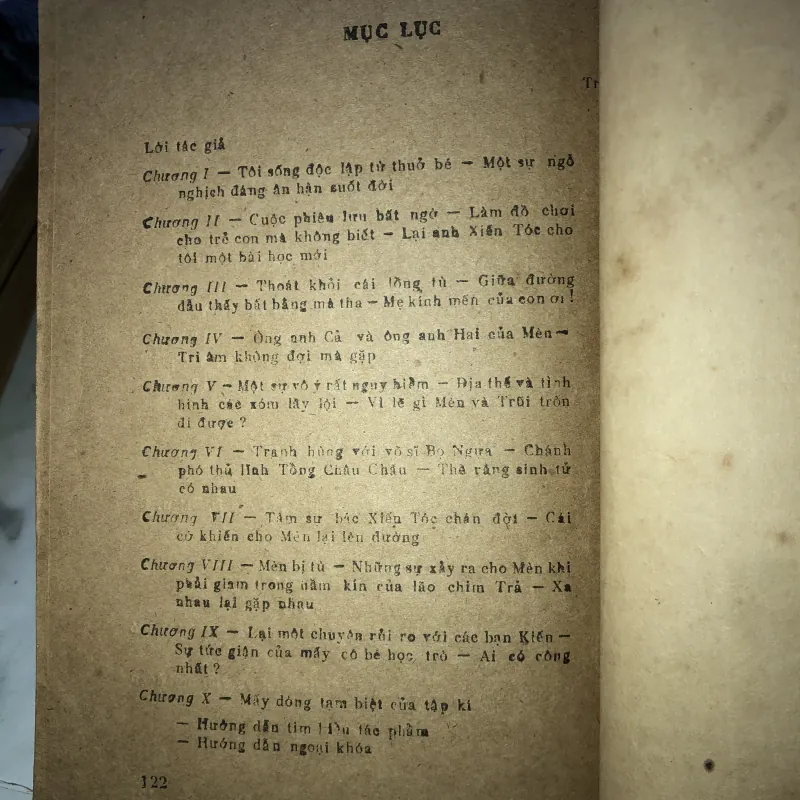 MỤC LỤC
Tr
Lời tác giả
Chương I — Tôi sống độc lập từ thuở bé — Một sự ngỗ
nghịch đáng ân hận suốt đời
Chương II — Cuộc phiêu lưu bất ngờ — Làm đồ chơi
cho trẻ con mà không biết — Lại anh Xiến Tóc cho
tôi một bài học mới
Chương III — Thoát khỏi cái lồng tù — Giữa đường
dẫu thấy bất bằng mà tha — Mẹ kính mến của con ơi !
Chương IV — Ông anh Cả và ông anh Hai của Mèn —
Tri âm không đợi mà gặp
Chương V — Một sự vô ý rất nguy hiểm — Địa thế và tình
hình các xóm lầy lội — Vì lẽ gì Mèn và Trũi trốn
đi được ?
Chương VI — Tranh hùng với võ sĩ Bọ Ngựa — Chánh
phó thủ lĩnh Tổng Châu Chấu — Thề rằng sinh tử
có nhau
Chương VII — Tâm sự bác Xiến Tóc chán đời — Cái
cớ khiến cho Mèn lại lên đường
Chương VIII — Mèn bị tù — Những sự xảy ra cho Mèn khi
phải giam trong hầm kín của lão chim Trả — Xa
nhau lại gặp nhau
Chương IX — Lại một chuyện rủi ro với các bạn Kiến —
Sự tức giận của mấy cô bé học trò — Ai có công
nhất ?
Chương X — Mấy dòng tạm biệt của tập kí
— Hướng dẫn tìm hiểu tác phẩm
— Hướng dẫn ngoại khóa
122